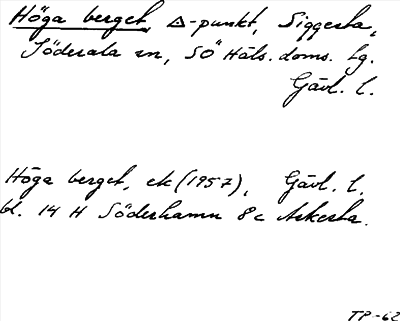 Höga berget, Δ-punkt, Siggesta,
Söderala sn, SÖ Häls. doms. tg.
Gävl. l.
Höga berget, ek (1957), Gävl. l.
bl. 14 H Söderhamn 8 c Askesta.
TP-62